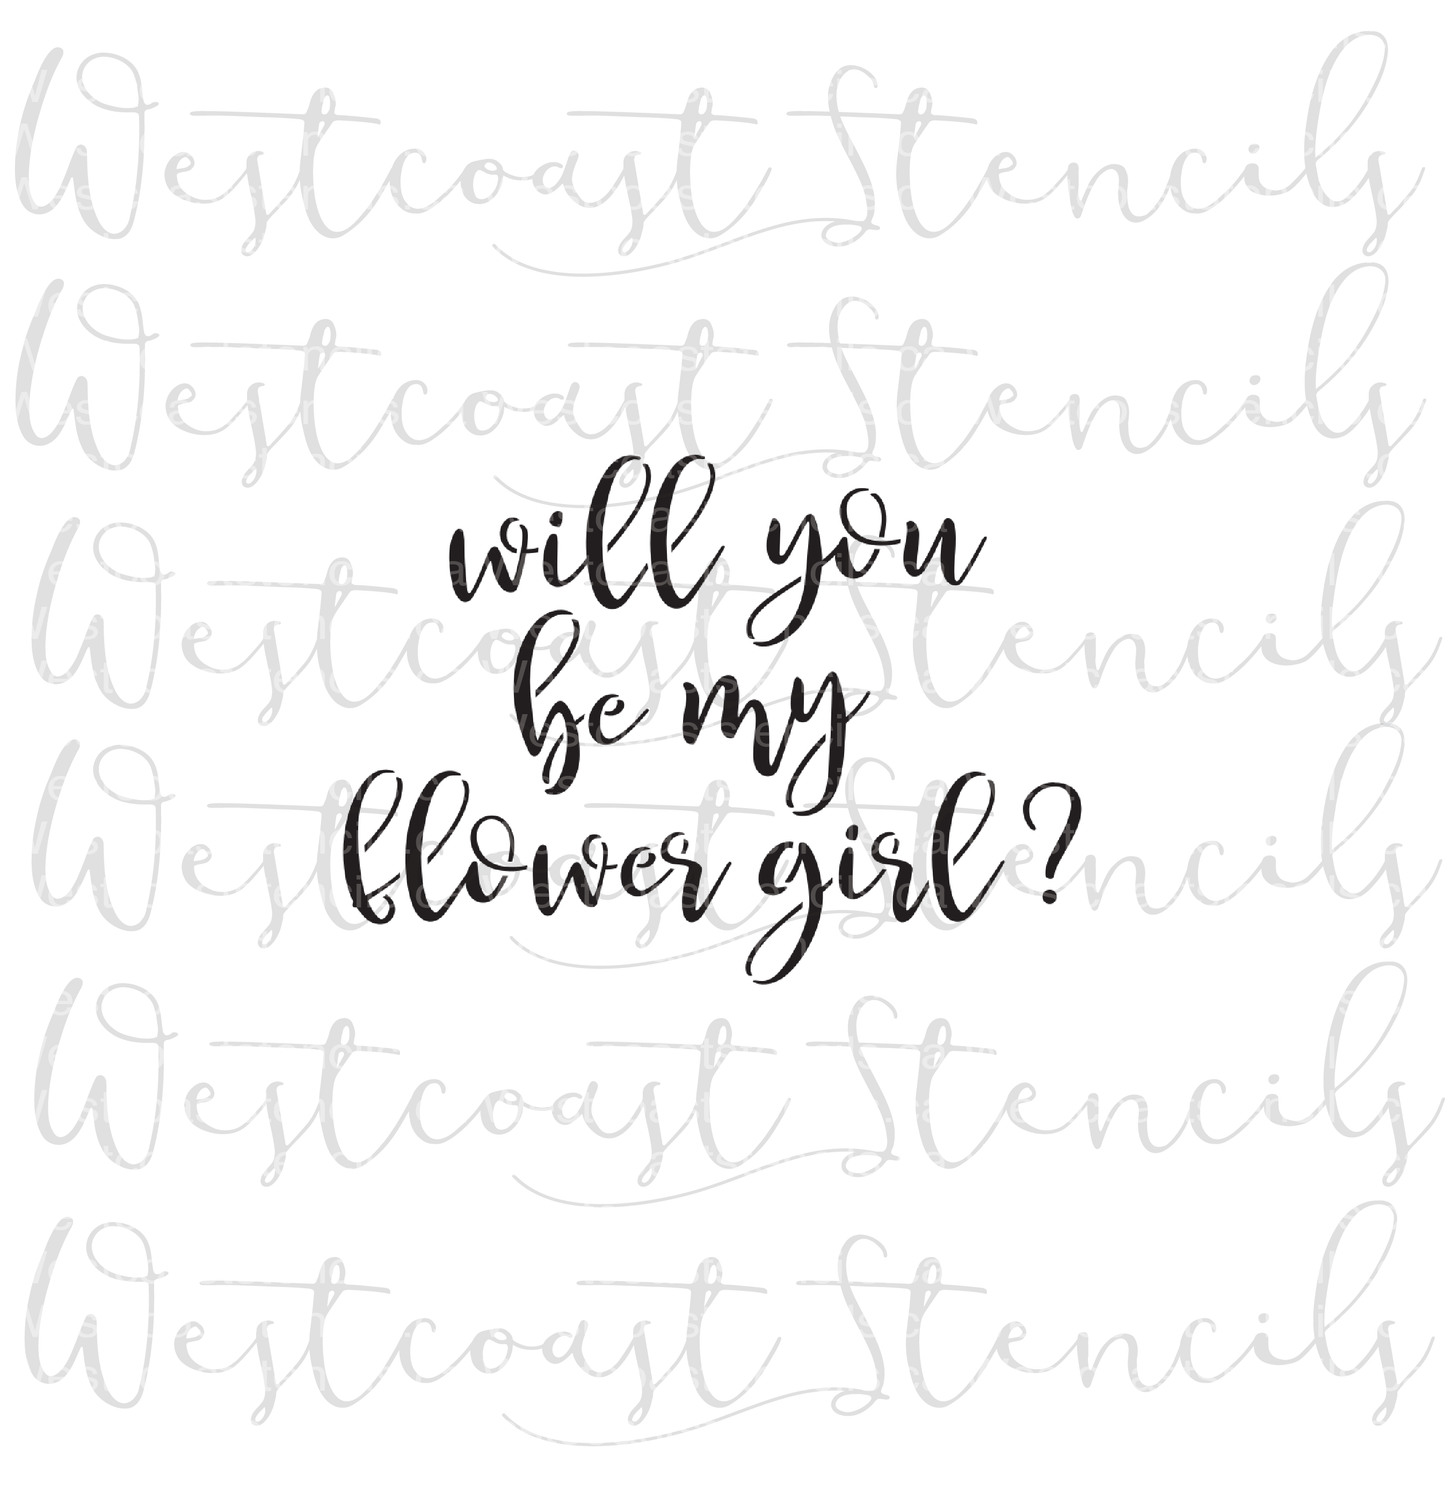 Westcoast Stencils
Westcoast Stencils
will you
Westcoast Stencils
be my
Westcoast Stencils
flower girl?
Westcoast Stencils
Westcoast Stencils